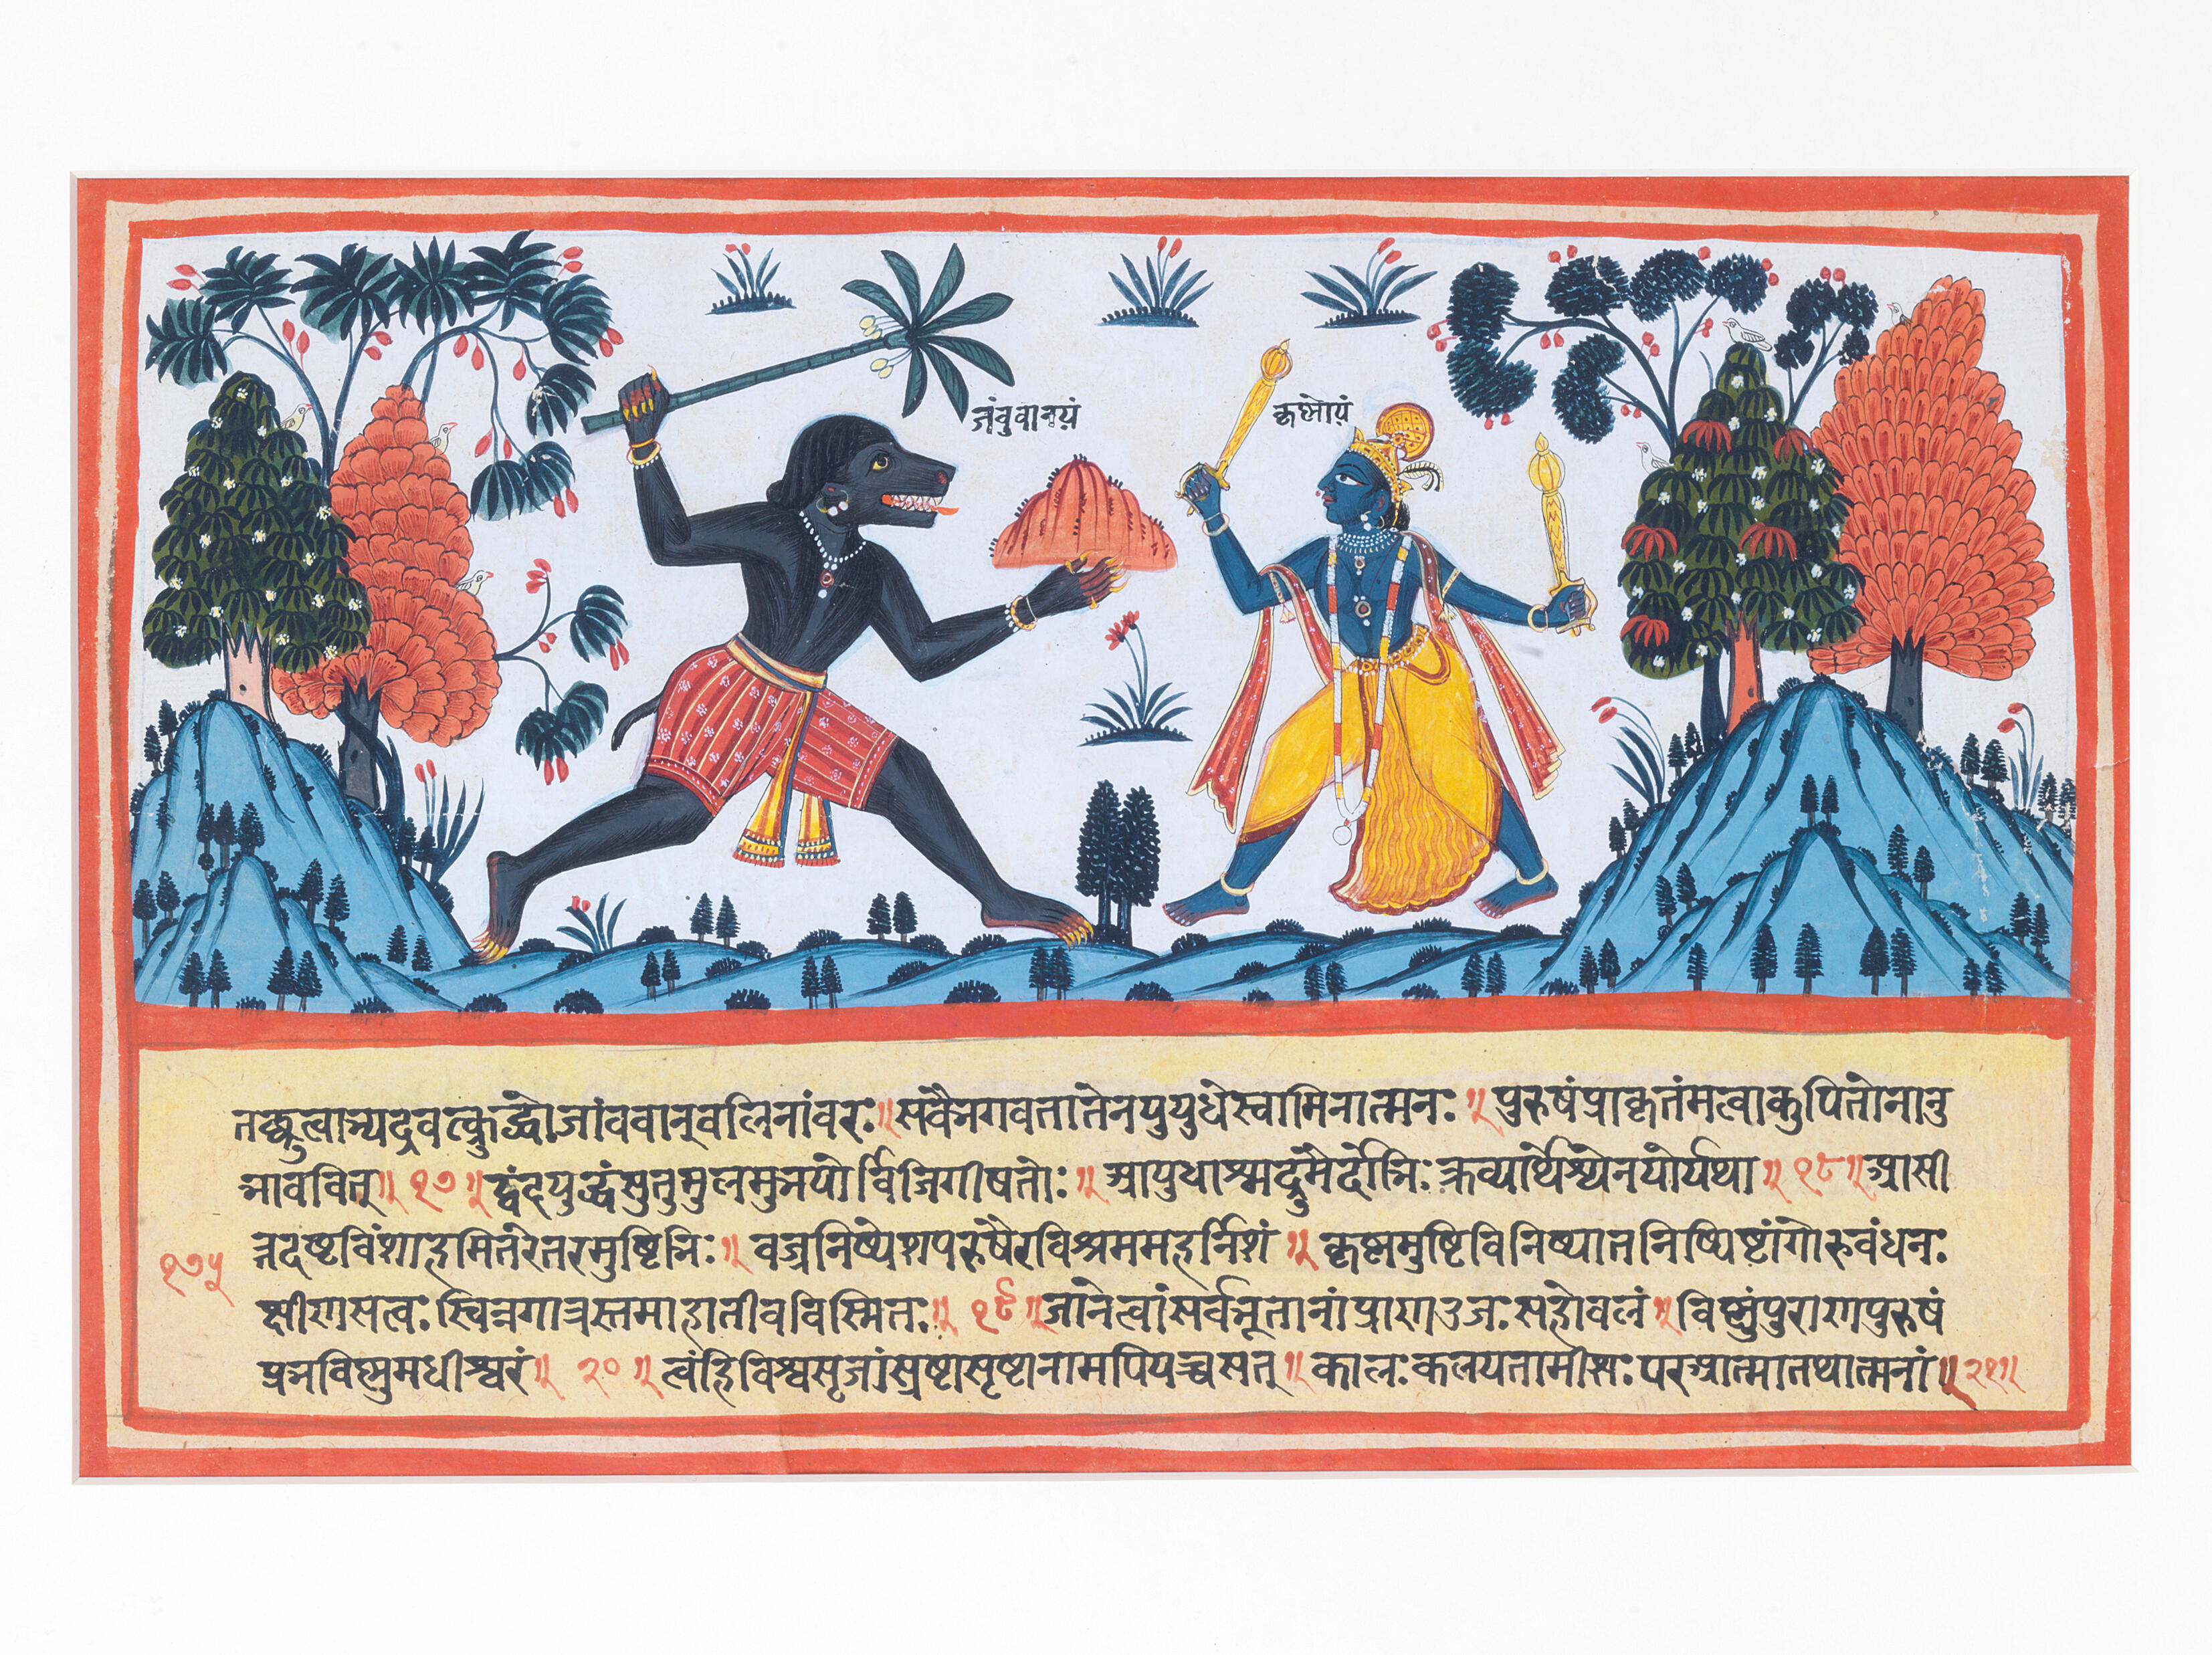 जंबुवानयं
कृष्णोयं
तछ्रुत्वाभ्यद्रवत्क्रुद्धोजांववान्वलिनांवरः॥सवैभगवतातेनयुयुधेस्वामिनात्मनः॥पुरुषंप्राकृतंमत्वाकुपितोनानु
भाववित्॥१७॥द्वंद्वयुद्धंसुतुमुलमुभयोर्विजिगीषतोः॥आयुधाश्मद्रुमैर्दोर्भिःक्रव्यार्थेश्येनयोर्यथा॥१८॥आसी
त्तदष्टविंशाहमितरेतरमुष्टिभिः॥वज्रनिष्पेशपरुषैरविश्रममहर्निशं॥कृष्णमुष्टिविनिष्पातनिष्पिष्टांगोरुवंधनः
१७५
क्षीणसत्वःस्विन्नगात्रस्तमाहातीवविस्मितः॥१९॥जानेत्वांसर्वभूतानांप्राणओजःसहोवलं॥विष्णुंपुराणपुरुषं
प्रभविष्णुमधीश्वरं॥२०॥त्वंहिविश्वसृजांस्रष्टासृष्टानामपियच्चसत्॥कालःकलयतामीशःपरआत्मातथात्मनां॥२१॥